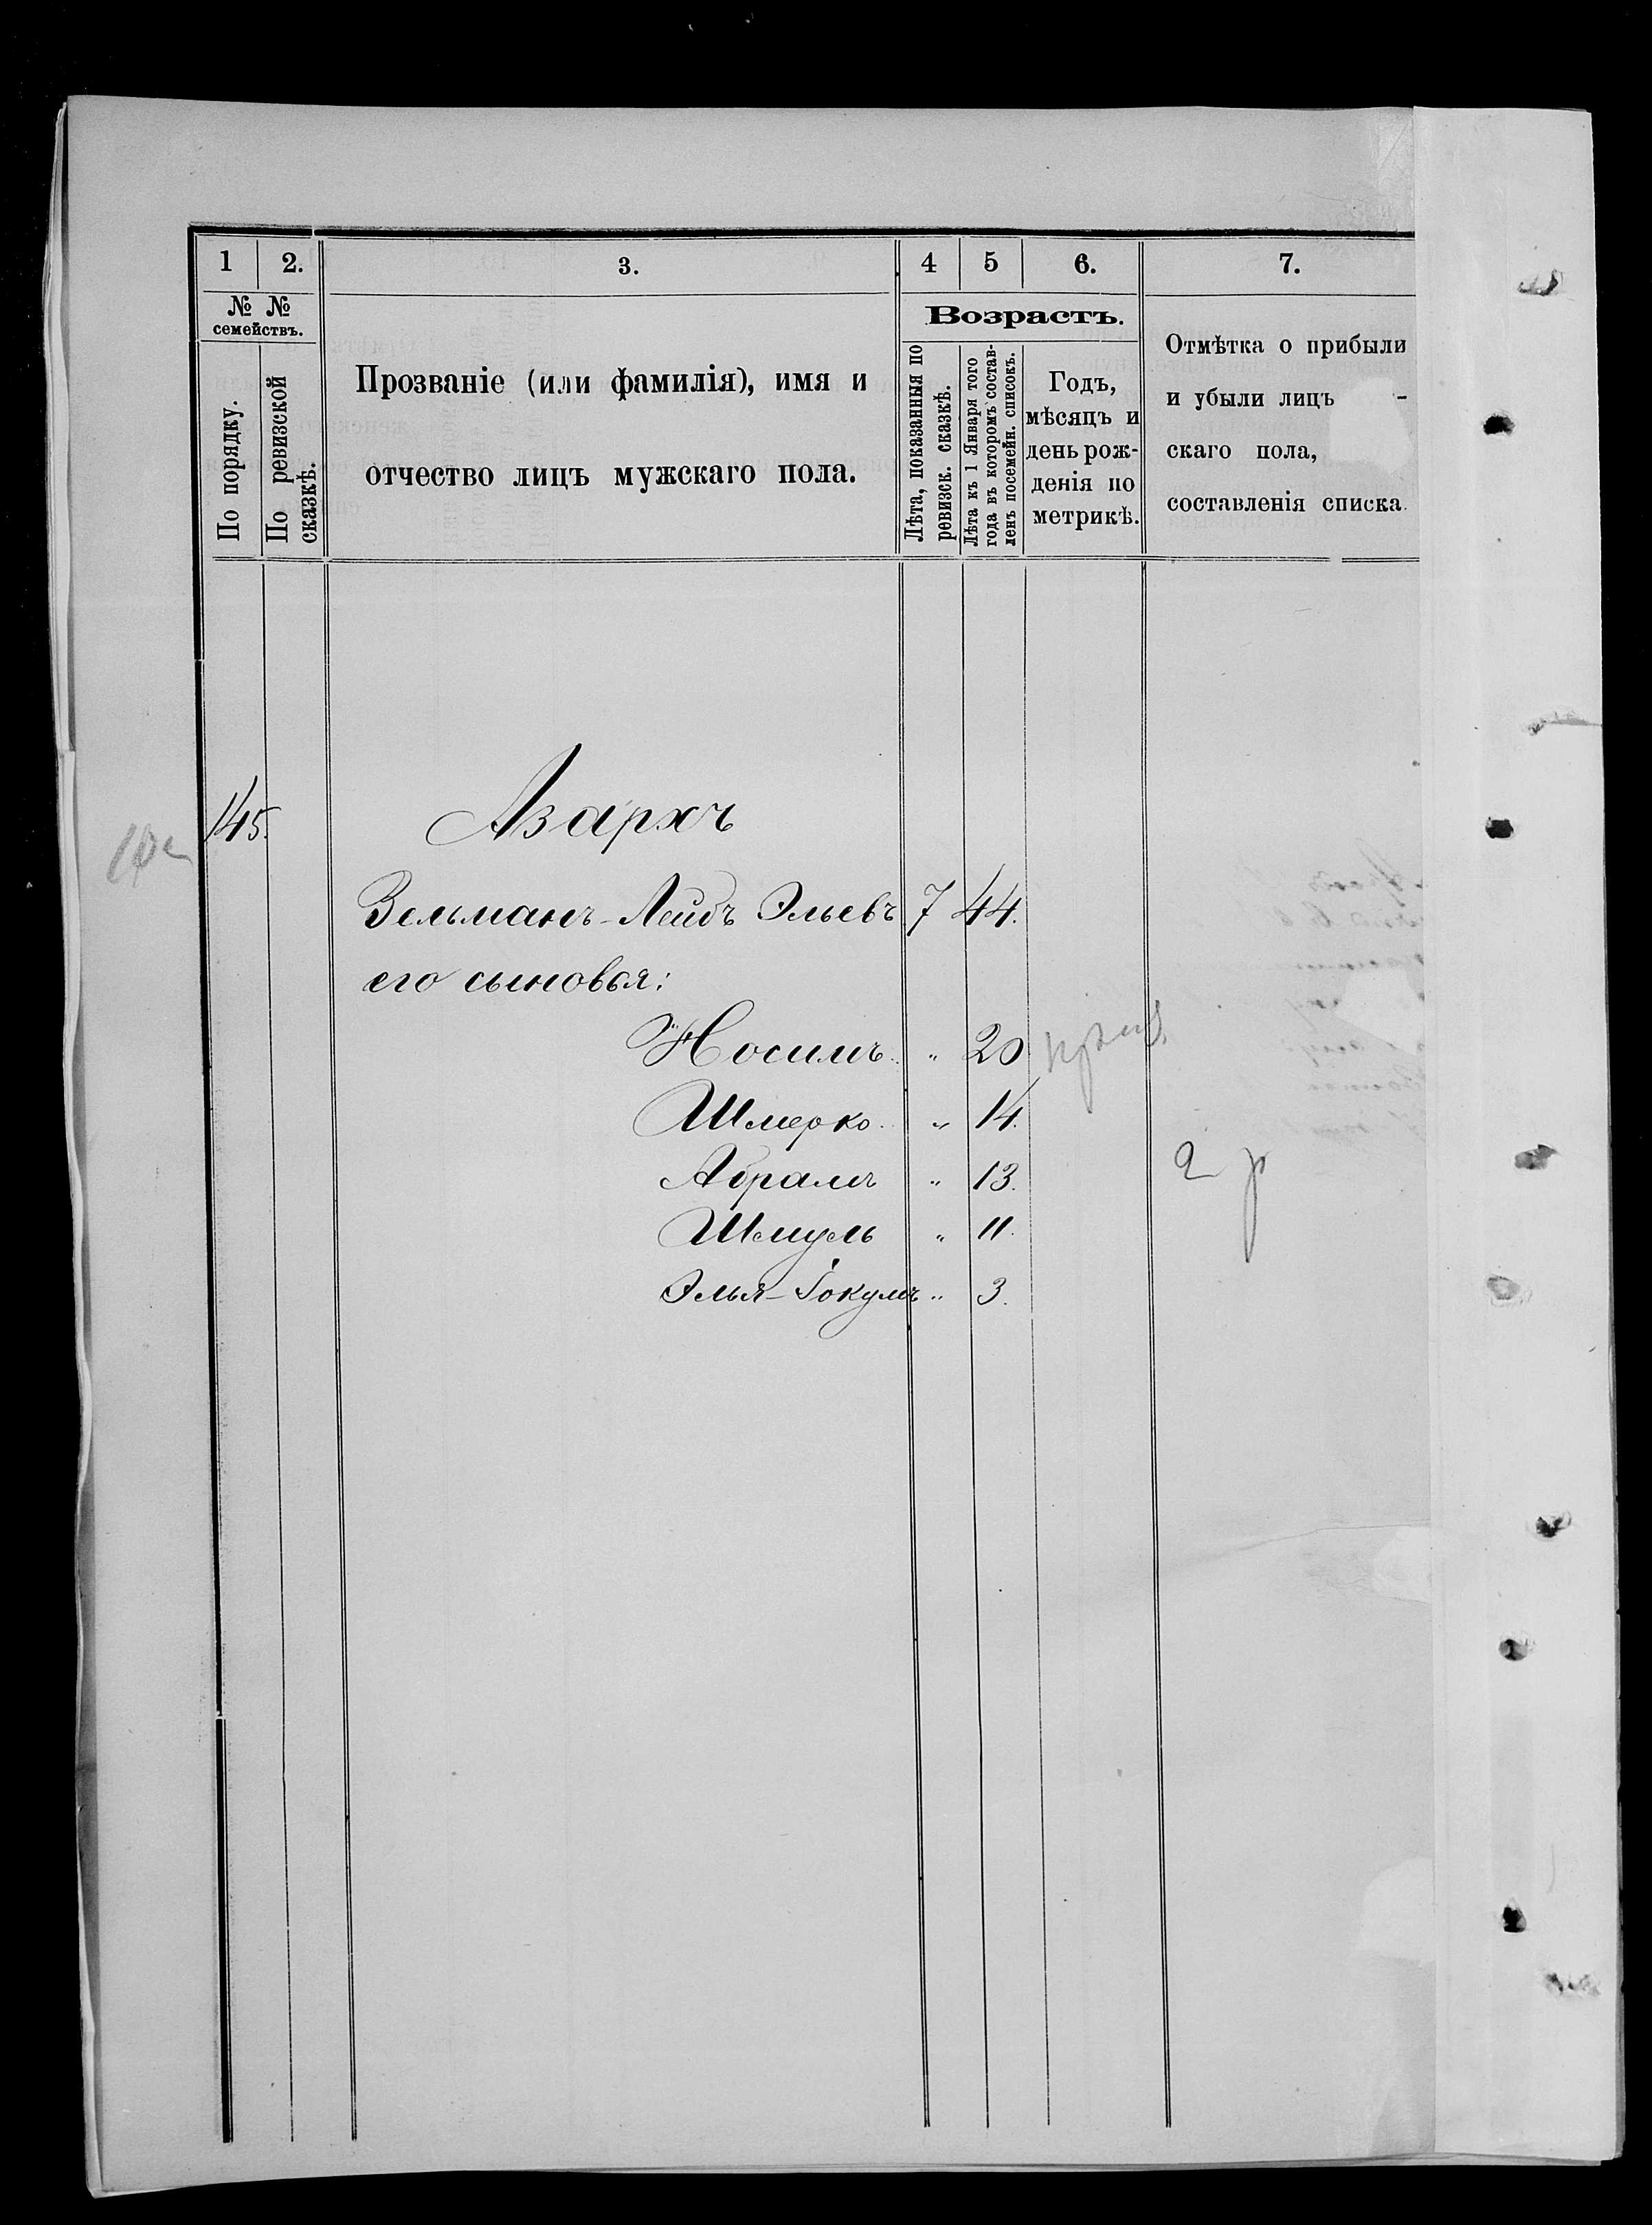 1 2. 3. 4 5 6. 7.
№ №
семействъ.
По порядку.
По ревизской
сказкѣ.
Прозваніе (или фамилія), имя и
отчество лицъ мужскаго пола.
Возрастъ.
Лѣта, показанныя по
ревизск. сказкѣ.
Лѣта къ 1 Января того
года въ которомъ состав-
ленъ посемейн. списокъ.
Годъ,
мѣсяцъ и
день рож-
денія по
метрикѣ.
Отмѣтка о прибыли
и убыли лицъ -
скаго пола,
составленія списка
145. Азархъ
Зельманъ-Лейбъ Эльевъ 7 44.
его сыновья:
Носимъ " 20
Шмерко " 14.
Абрамъ " 13.
Шмуль " 11.
Элья-Іокумъ " 3.
2 р